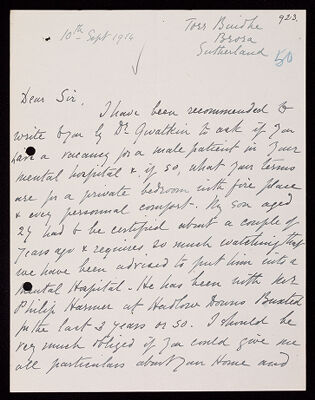 923.
Torr Buidhe
Brora
Sutherland
50
10th Sept 1914
Dear Sir,
I have been recommended to
write to you by Dr Gwatkin to ask if you
have a vacancy for a male patient in your
mental hospital & if so, what your terms
are for a private bedroom with fire place
& every personal comfort. My son aged
24 had to be certified about a couple of
years ago & requires so much watching that
we have been advised to put him into a
Mental Hospital. He has been with
Philip Harmer at Hadlow Downs Buxted
for the last 2 years or so. I should be
very much obliged if you could give me
all particulars about your Home and